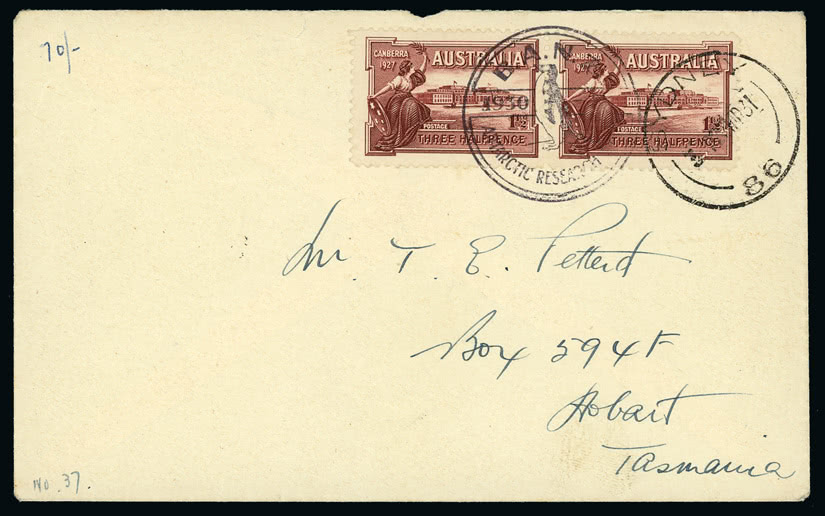 10/-
CANBERRA 1927 AUSTRALIA
1½D
POSTAGE
THREE HALFPENCE
CANBERRA 192 AUSTRALIA
1½D
POSTAGE
THREE HALFPENCE
B.A.N.
1930
ANTARCTIC RESEARCH
SYDNEY
98
Mr T. E. Petterd
Box 594F
Hobart
Tasmania
No. 37.